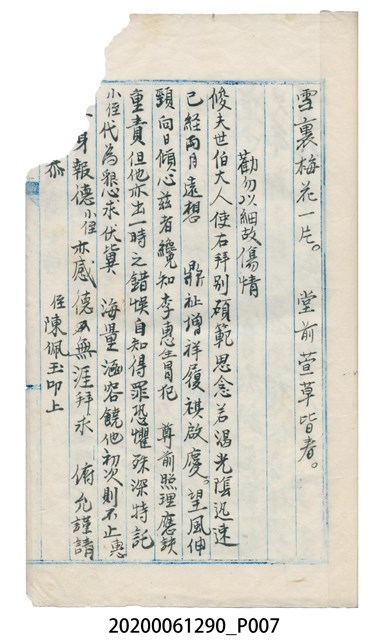 雪裏梅花一片。 堂前萱草皆春。
勸勿以細故傷情
俊夫世伯大人使右拜別 碩範思念若渴光陰迅速
已經兩月遠想 鼎祉增祥履祺啟慶。望風伸
頸向日傾心茲者纔知李惠
冒犯 尊前照理應
重責但他亦出一時之錯悞自知得罪恐懼殊深特託
小侄代為懇求伏冀 海量涵容饒他初次則不止惠
身報德小侄亦感 德
無涯拜
 俯允謹請
侄陳佩玉叩上
20200061290_P007